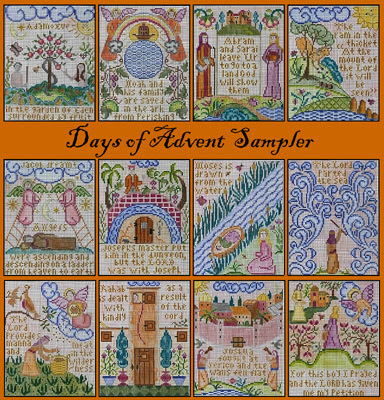 Adam&Eve
in the garden of Eden
surrounded by fruit
Noah and
his family
are saved
in the ark
from perishing
Abram
and Sarai
leave Ur
to go to a
land God
will show
them
The
ram is
in the
thicket
At the
mount of
the Lord
it will
be seen
Days of Advent Sampler
Jacob dreams
Angels
were ascending and
descending on a ladder
from heaven to earth
Joseph's master put
him in the dungeon,
but the LORD
was with Joseph
Moses is
drawn
from the
water
The Lord
Parted
the Sea
The
Lord
Provides
manna
and
meat in
the
wilder
ness
Rahab
is dealt
with
kindly
as a
result
of the
cord
Joshua
fought at
Jerico and the
walls fell flat
For this boy I Prayed
and the LORD has given
me my Petition